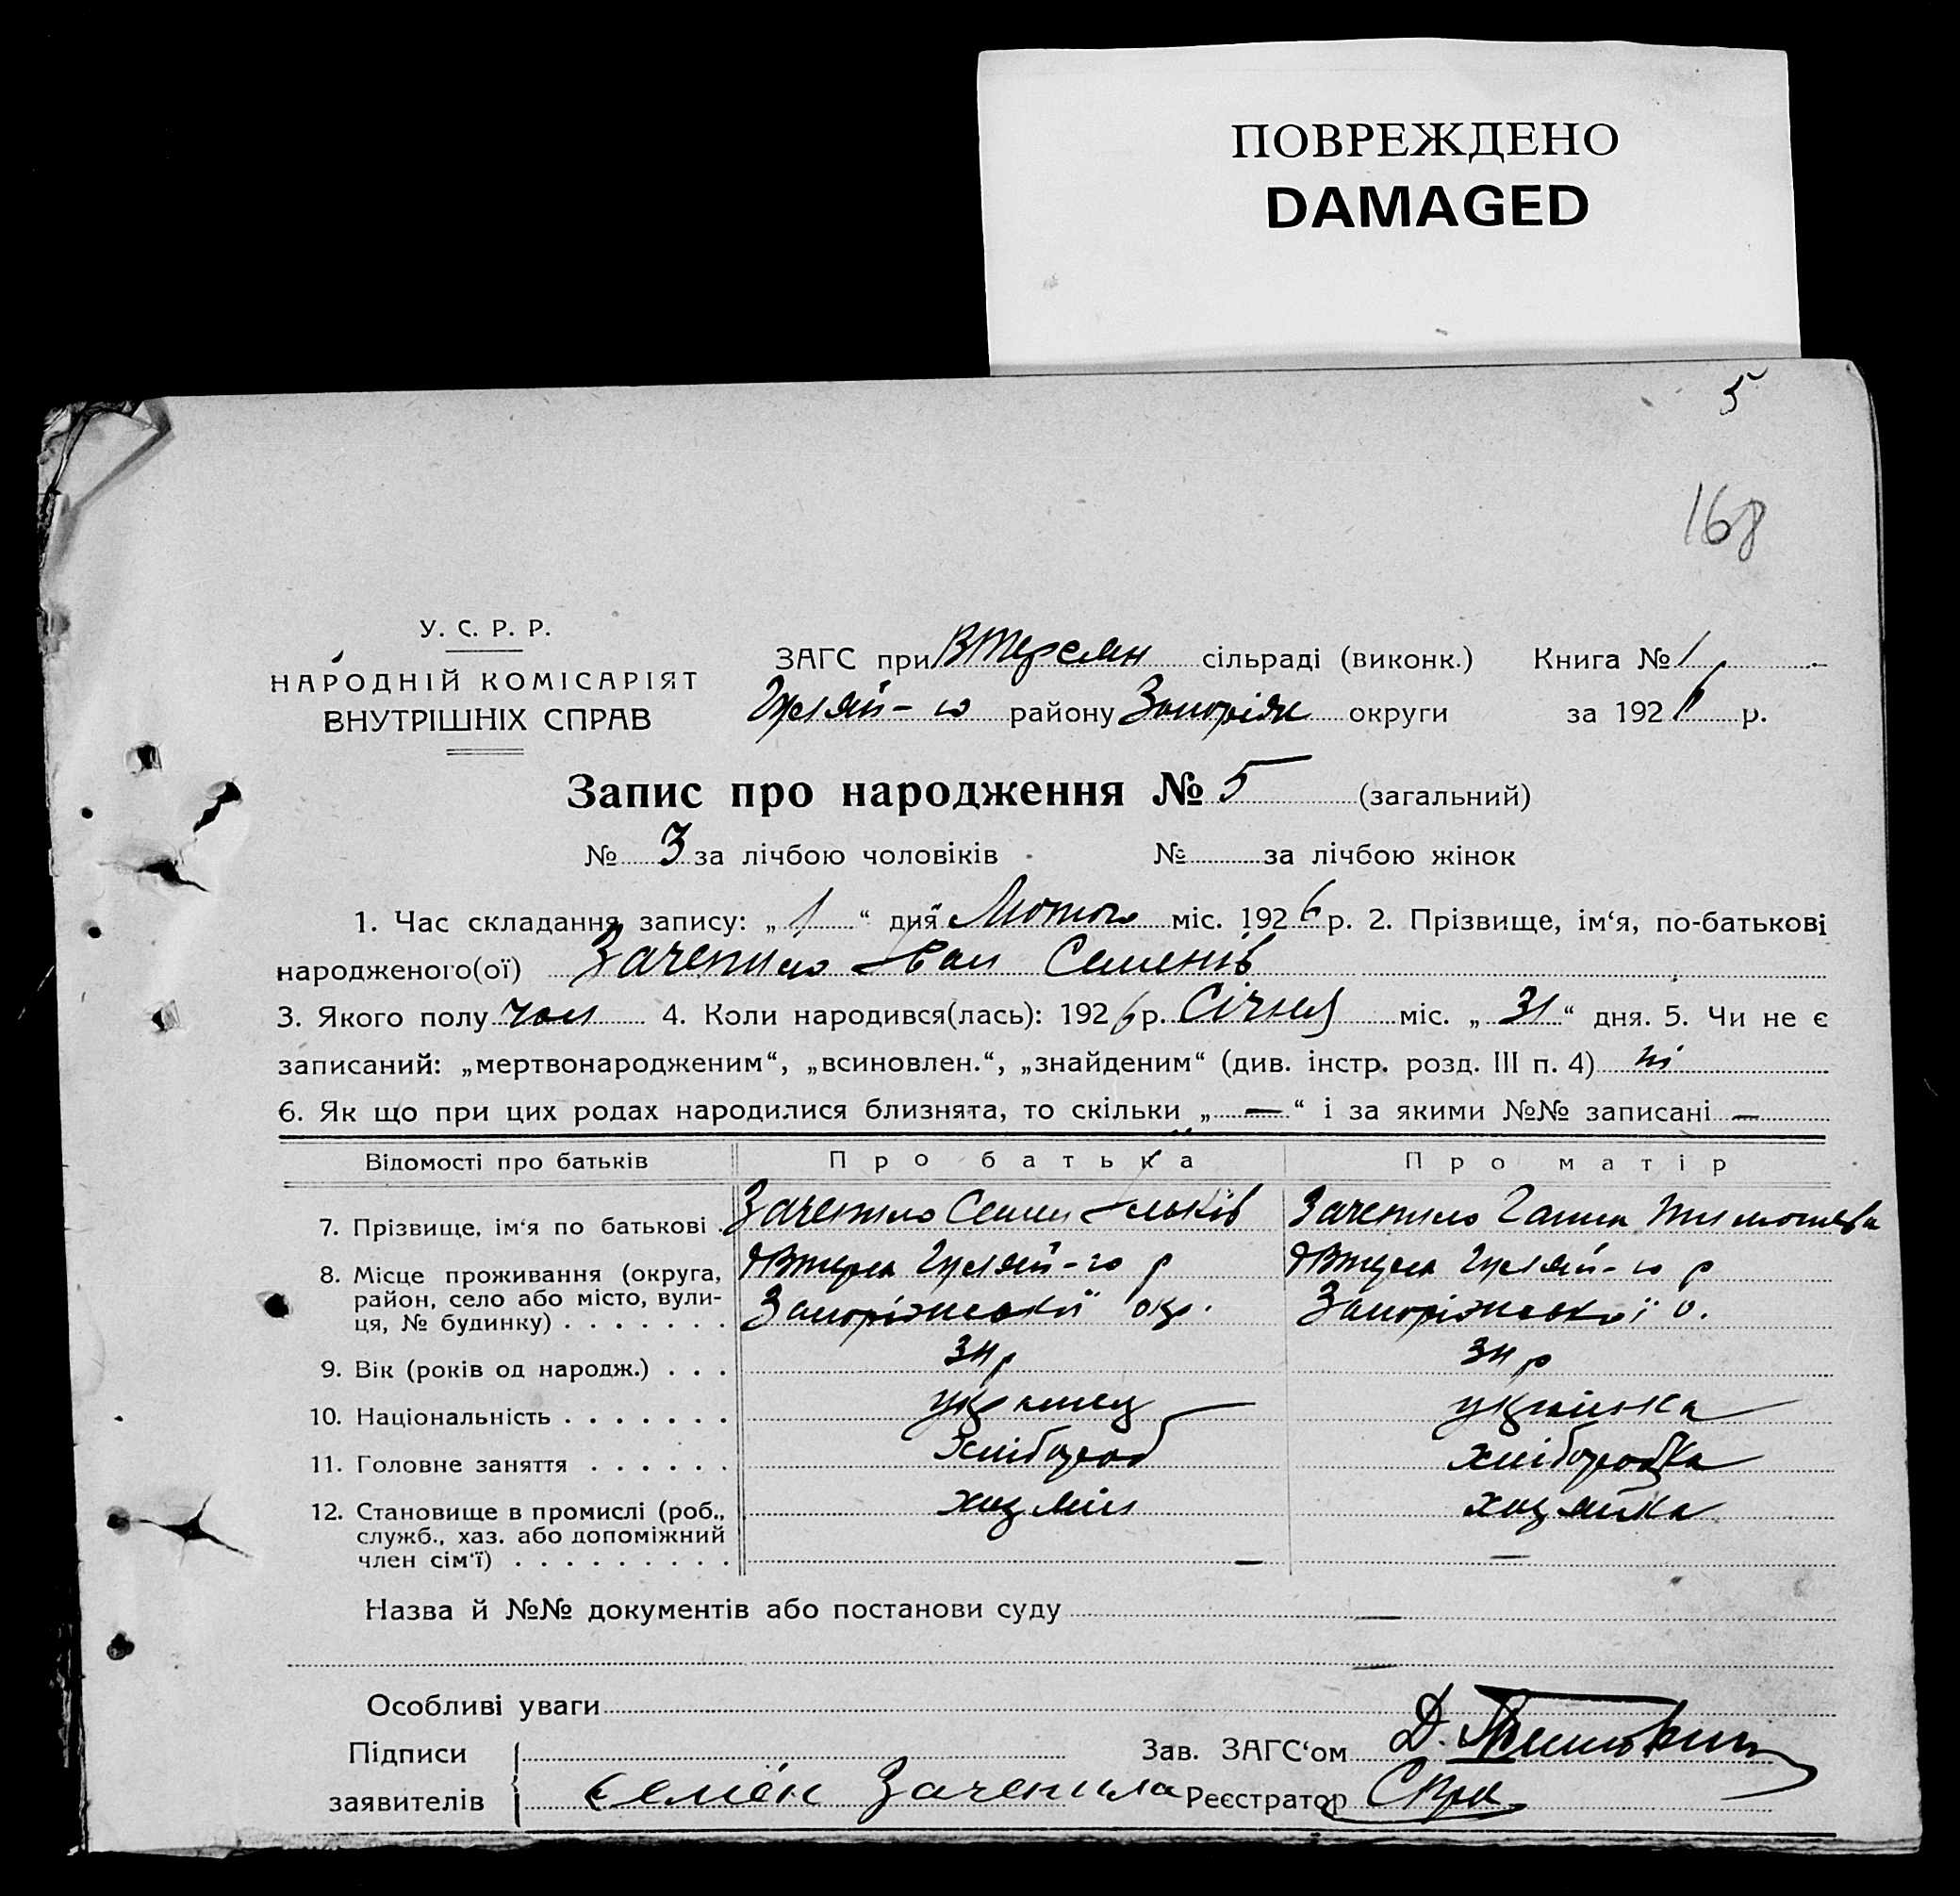 ПОВРЕЖДЕНО
DAMAGED
5
168
У. С. Р. Р.
НАРОДНІЙ КОМІСАРІЯТ
ВНУТРІШНІХ СПРАВ
ЗАГС при ВТерсян сільраді (виконк.) Книга № 1
Гуляй-го району Запоріж округи за 1926 р.
Запис про народження № 5 (загальний)
№ 3 за лічбою чоловіків № за лічбою жінок
1. Час складання запису: „ 1 “ дня Лютого міс. 1926 р. 2. Прізвище, ім‘я, по-батькові
народженого(ої) Зачепило Іван Семенів
3. Якого полу чол 4. Коли народився(лась): 1926 р. Січня міс. „ 31 “ дня. 5. Чи не є
записаний: „мертвонародженим“, „всиновлен.“, „знайденим“ (див. інстр. розд. III п. 4) ні
6. Як що при цих родах народилися близнята, то скільки „ — “ і за якими №№ записані —
Відомості про батьків Про батька Про матір
7. Прізвище, ім‘я по батькові . Зачепило Семен Ільків Зачепило Ганна Тимошева
8. Місце проживання (округа, район, село або місто, вулиця, № будинку) . . . . . . . Гуляй-го р Запоріжської окр. Гуляй-го р Запоріжської о.
9. Вік (років од народж.) . . . 34 р 34 р
10. Національність . . . . . . . украинец українка
11. Головне заняття . . . . . . хлібороб хліборобка
12. Становище в промислі (роб., служб., хаз. або допоміжний член сім‘ї) . . . . . . . . . хозяїн — хозяйка —
Назва й №№ документів або постанови суду —
—
Особливі уваги
Підписи Зав. ЗАГС‘ом Д.
заявителів Семён Зачепила Реєстратор